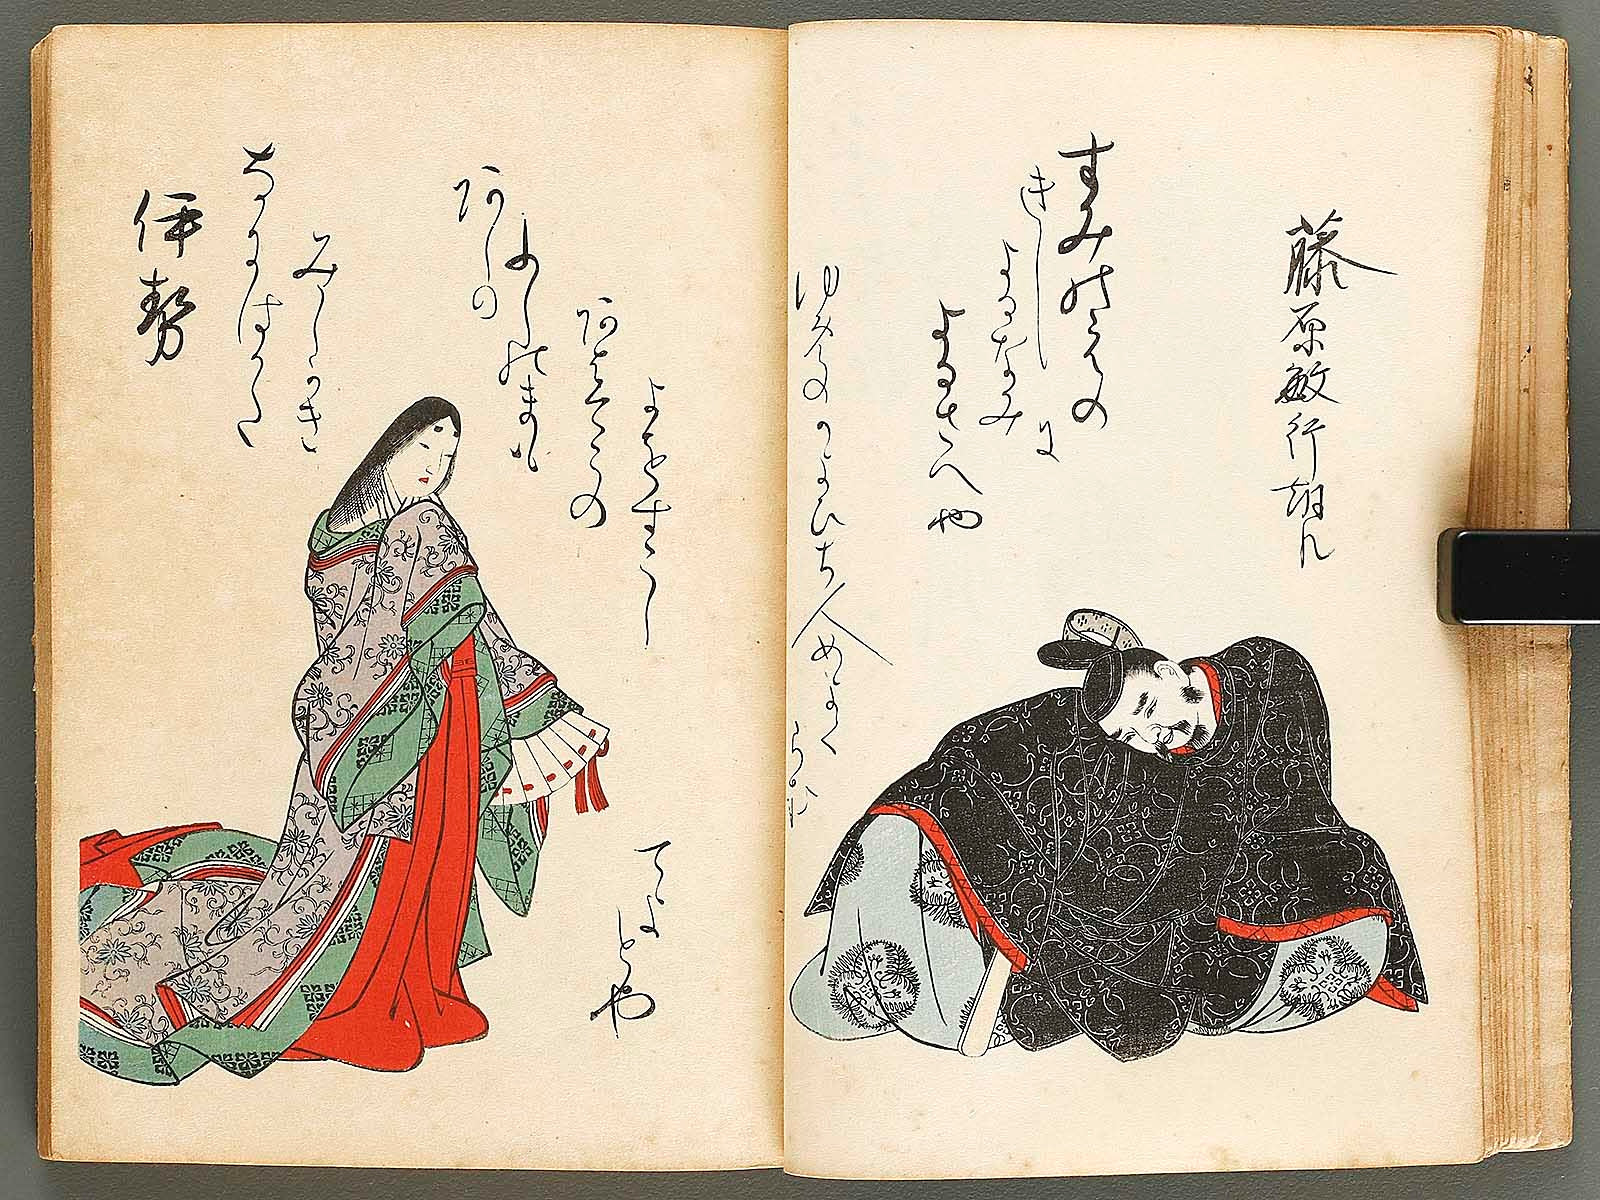 藤原敏行朝臣
すみのえの
きしに
よるなみ
よるさへや
ゆめのかよひち人めよくらむ
伊勢
なにはかた
みしかき
あしの
ふしのまも
あはてこの
よをすくし
てよとや